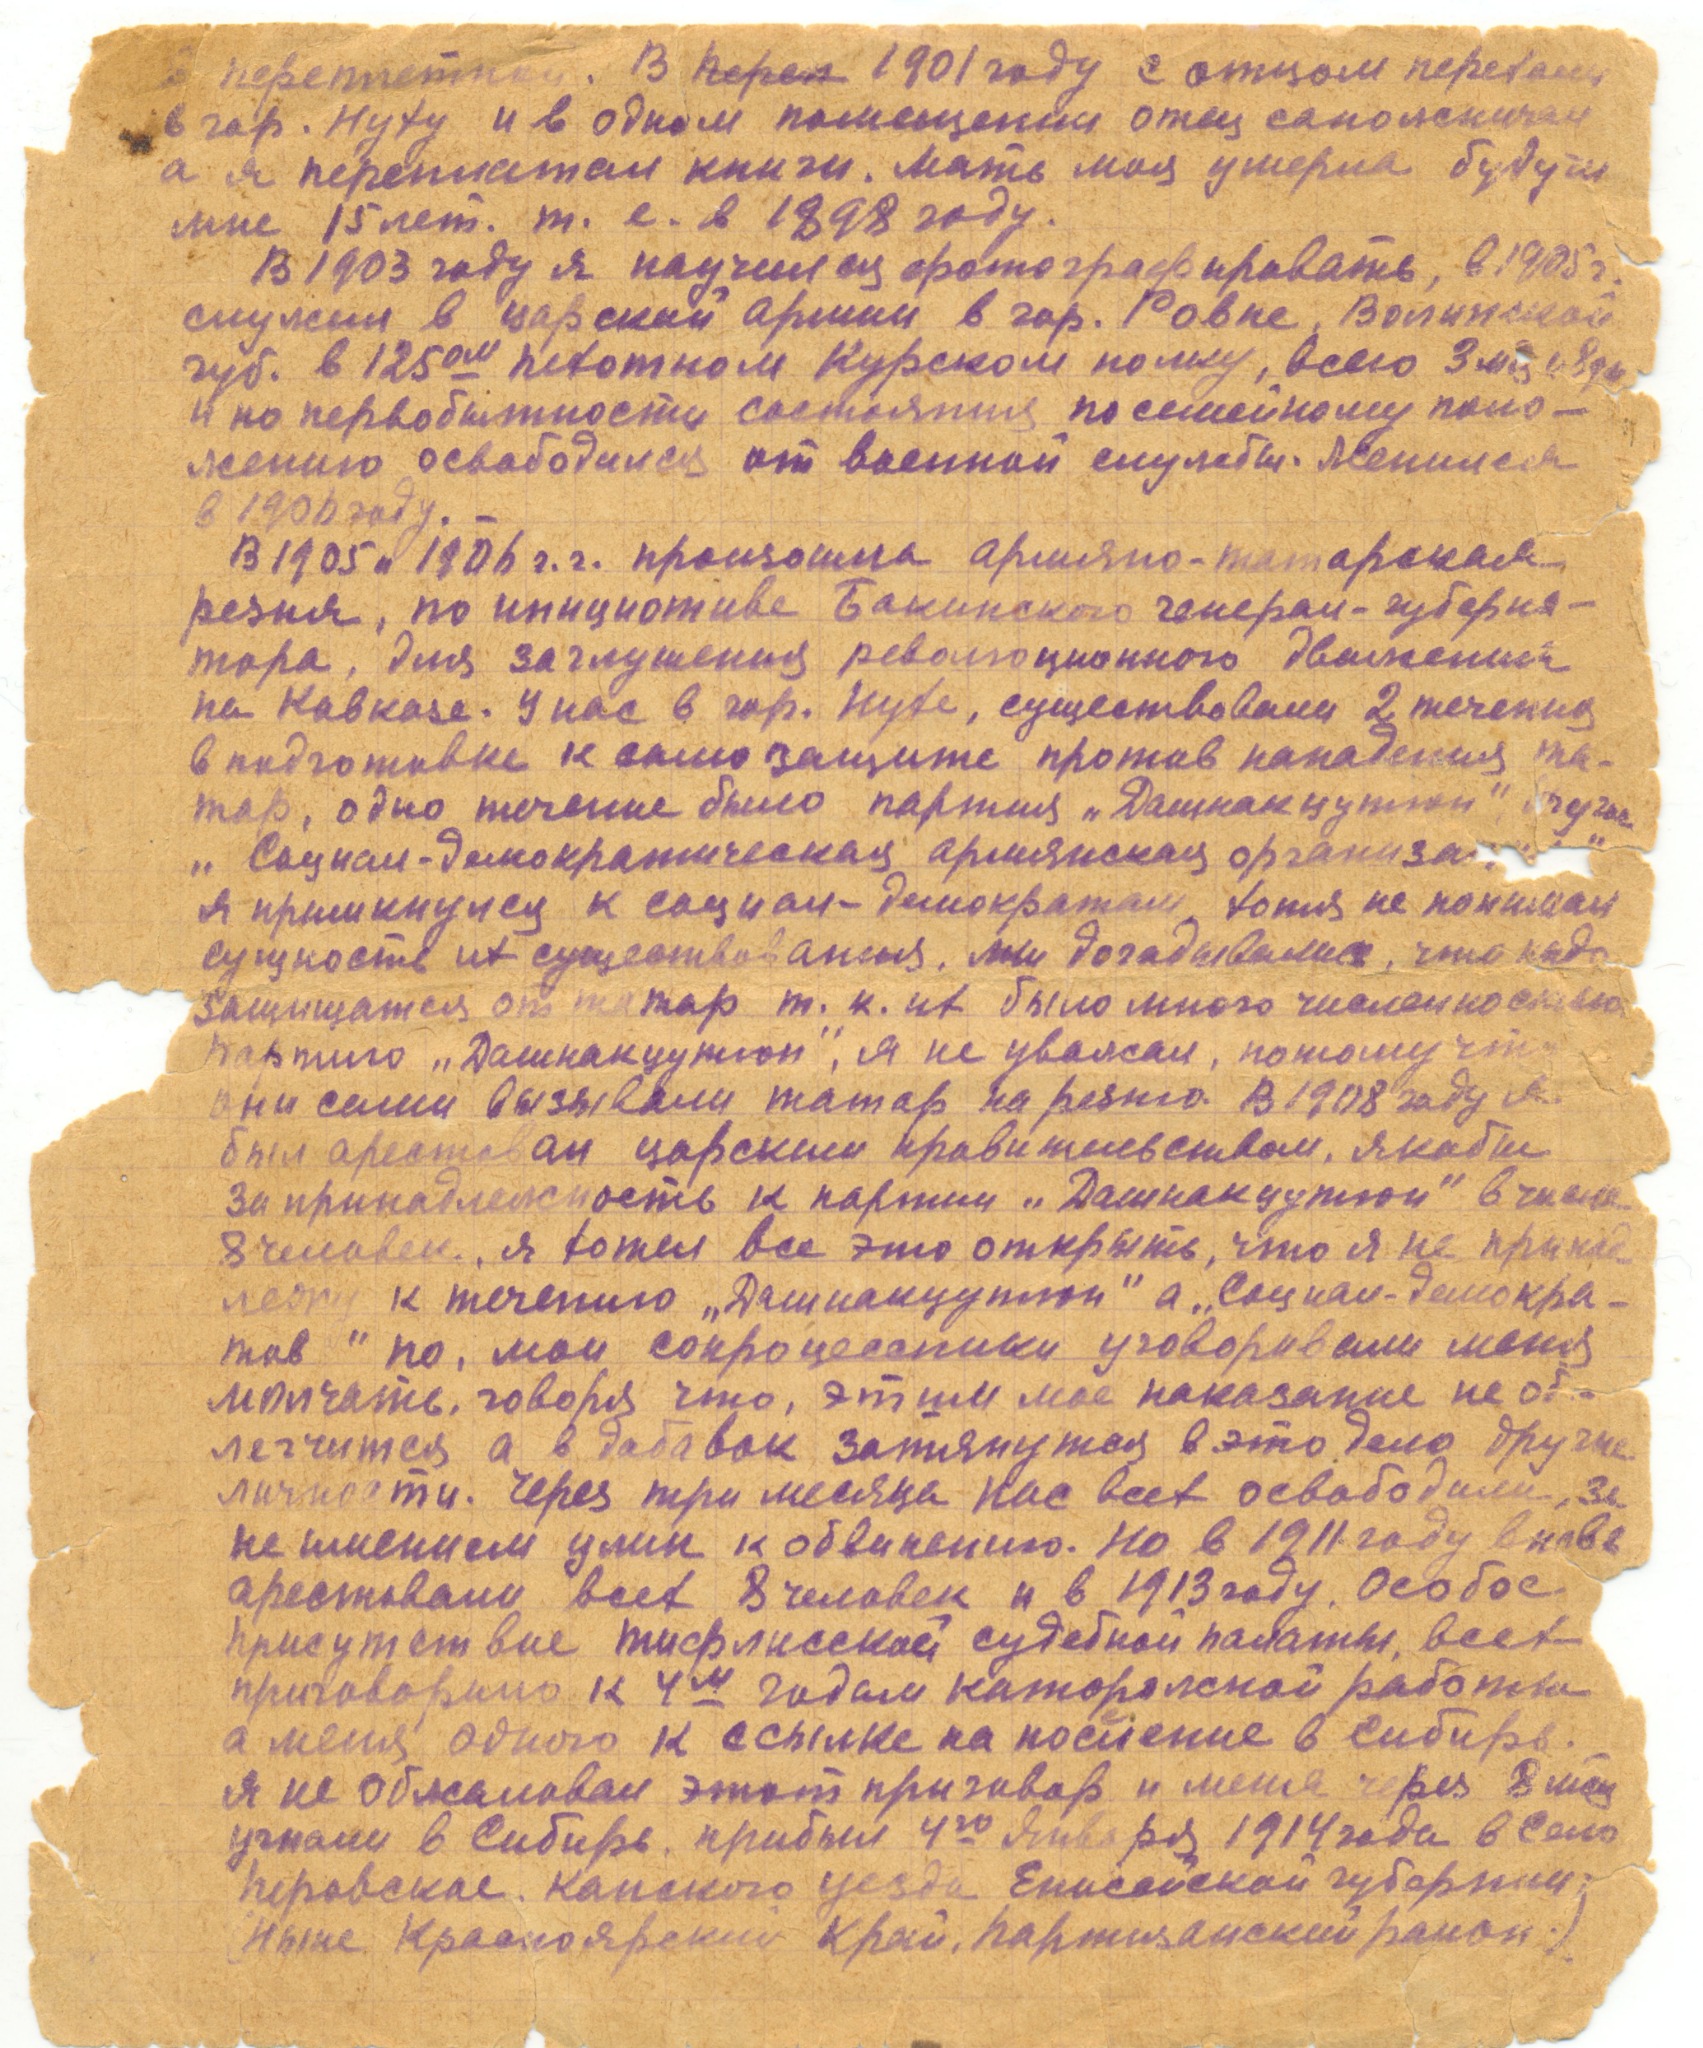 переплетной. В перел 1901 году с отцом переехали
в гор. Нуху и в одном помещении отец сапожничал
а я переплетал книги. Мать моя умерла будучи
мне 15 лет. т. е. в 1898 году.
В 1903 году я научился фотографировать, в 1905 г.
служил в царской армии в гор. Ровне, Волынской
губ. в 125ом пехотном Курском полку, всего 3 мец и 8 дн
и по первобытности состояния по семейному поло-
жению освободился от военной службы. Женился
в 1906 году. –
В 1905 и 1906 г.г. произошла армяно-татарская
резня, по инициативе Бакинского генерал-губерна-
тора, для заглушения революционного движения
на Кавказе. У нас в гор. Нухе, существовали 2 течения
в подготовке к самозащите против нападения та-
тар, одно течение было партия „Дашнакцутюн",
„Социал-демократическая армянская организа
Я примкнулся к социал-демократам, хотя не понимал
сущность их существования, мы догадывались, что надо
защищатся от татар т. к. их было много численностью
Партию „Дашнакцутюн", я не уважал, потому что
они сами вызывали татар на резню. В 1908 году я
был арестован царским правительством, якобы
за принадлежность к партии „Дашнакцутюн" в числе
8 человек., я хотел все это открыть, что я не принад-
лежу к течению „Дашнакцутюн" а „Социал-демокра-
тов" но, мои сопроцессники уговоривали меня
молчать, говоря что, этим мое наказание не об-
легчится а в добавок затянутся в это дело другие
личности. Через три месяца нас всех освободили, за
не имением улик к обвинению. Но в 1911 году вновь
арестовали всех 8 человек и в 1913 году. Особое
присутствие Тифлисской судебной палаты, всех
приговорило к 4м годам каторжной работы
а меня одного к ссылке на поселение в Сибирь.
Я не обжаловал этот приговор и меня через 8 мец
угнали в Сибирь. прибыл 4го Января 1914 года в Село
Перовское. Канского уезда Енисейской губернии.
(Ныне Красноярский Край, Партизанский район.)